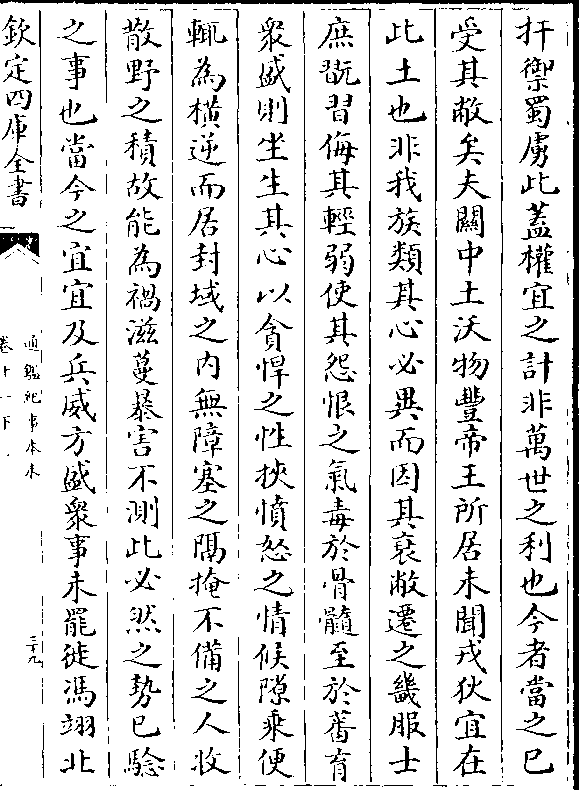 扞禦蜀虜此蓋權宜之計非萬世之利也今者當之已
受其敝矣夫關中土沃物豐帝王所居未聞戎狄宜在
此土也非我族類其心必異而因其衰敝遷之畿服士
庶翫習侮其輕弱使其怨恨之氣毒於骨髓至於蕃育
衆盛則坐生其心以貪悍之性挾憤怒之情候隙乘便
輒為橫逆而居封域之内無障塞之隔掩不備之人收
散野之積故能為禍滋蔓暴害不測此必然之勢已驗
之事也當今之宜宜及兵威方盛衆事未罷徙馮翊北
欽定四庫全書
通鑑紀事本末
卷十一下
三十九